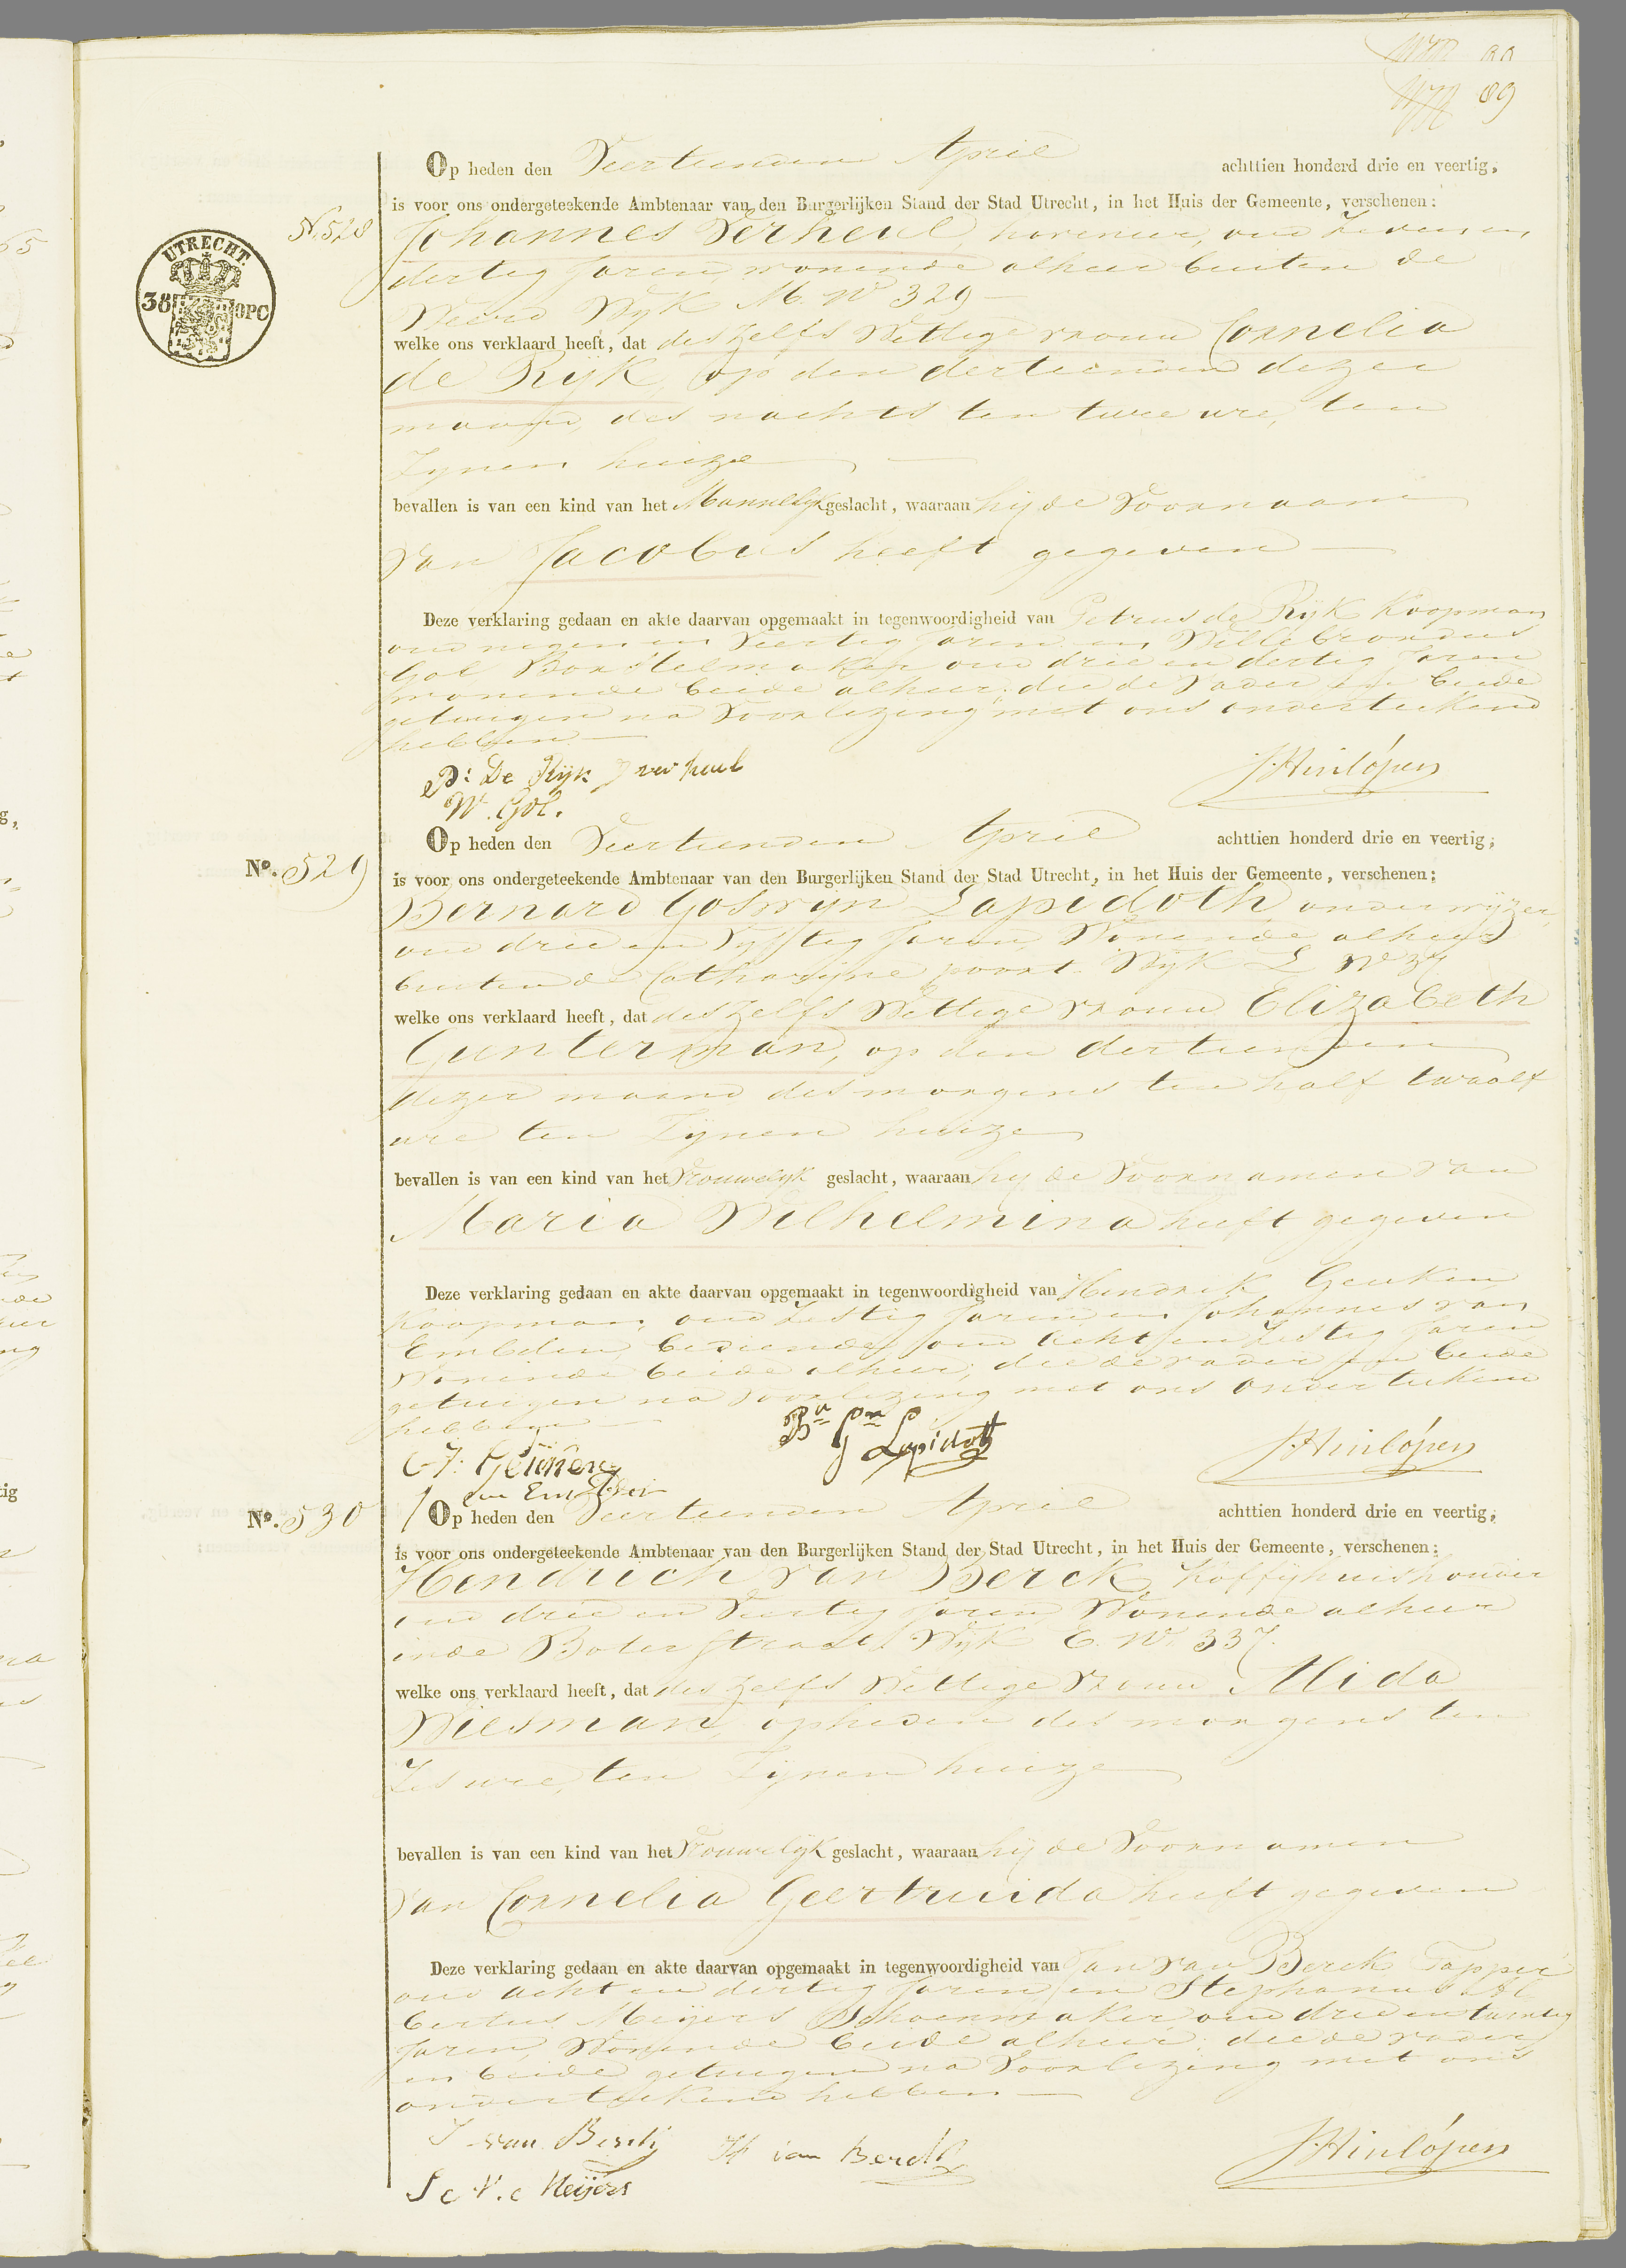 89
UTRECHT.
38 OPC
N. 528
Op heden den Veertienden April achttien honderd drie en veertig,
is voor ons ondergeteekende Ambtenaar van den Burgerlijken Stand der Stad Utrecht, in het Huis der Gemeente, verschenen:
Johannes Verheul, hovenier, oud zeven en
dertig Jaren, wonende alhier buiten de
Weerd Wyk M. No 329
welke ons verklaard heeft, dat deszelfs Wettige vrouw Cornelia
de Rijk, op den dertienden dezer
maand, des nachts ten twee ure, ten
Zynen huize
bevallen is van een kind van het Mannelyk geslacht, waaraan hij de Voornaam
van Jacobus heeft gegeven
Deze verklaring gedaan en akte daarvan opgemaakt in tegenwoordigheid van Petrus de Rijk Koopman
oud negen en Veertig Jaren en Willebrordus
Gol Borstelmaker oud drie en dertig Jaren
wonende beide alhier, die de Vader en beide
getuigen na Voorlezing met ons onderteekend
hebben
P: De Rijk J verheul
W. Gol.
JHinlópen
No. 529
Op heden den Veertienden April achttien honderd drie en veertig,
is voor ons ondergeteekende Ambtenaar van den Burgerlijken Stand der Stad Utrecht, in het Huis der Gemeente, verschenen:
Bernard Goswyn Lapidoth, onderwyzer,
oud drie en Vyftig Jaren, Wonende alhier
buiten de Catharijne poort Wyk L No 37
welke ons verklaard heeft, dat deszelfs Wettige vrouw Elizabeth
Gunterman, op den dertienden
dezer maand des morgens ten half twaalf
ure ten Zynen huize
bevallen is van een kind van het Vrouwelyk geslacht, waaraan hij de Voornamen van
Maria Wilhelmina heeft gegeven
Deze verklaring gedaan en akte daarvan opgemaakt in tegenwoordigheid van Hendrik Geuken
Koopman, oud Zestig Jaren en Johannes van
Embden, bediende, oud Acht en Zestig Jaren
Wonende beide alhier, die de vader en beide
getuigen na Voorlezing met ons onderteekend
hebben
Lapidoth
JHinlópen
No. 530
Op heden den Veertienden April achttien honderd drie en veertig,
is voor ons ondergeteekende Ambtenaar van den Burgerlijken Stand der Stad Utrecht, in het Huis der Gemeente, verschenen:
Hendrich van Berck, Koffyhuishouder
oud drie en Veertig Jaren Wonende alhier
in de Boterstraat Wyk E. No. 337.
welke ons verklaard heeft, dat deszelfs Wettige Vrouw Alida
Wiesman, op heden des morgens ten
Zes ure, ten Zynen huize
bevallen is van een kind van het Vrouwelyk geslacht, waaraan hij de Voornamen
van Cornelia Geertruida heeft gegeven
Deze verklaring gedaan en akte daarvan opgemaakt in tegenwoordigheid van Jan van Berck Tapper
oud acht en dertig Jaren en Stephanus Al
bertus Meijers Schoenmaker oud drie en twintig
Jaren, Wonende beide alhier, die de vader
en beide getuigen na Voorlezing met ons
onderteekend hebben
J van Berck H van Berck
Meijers
JHinlópen